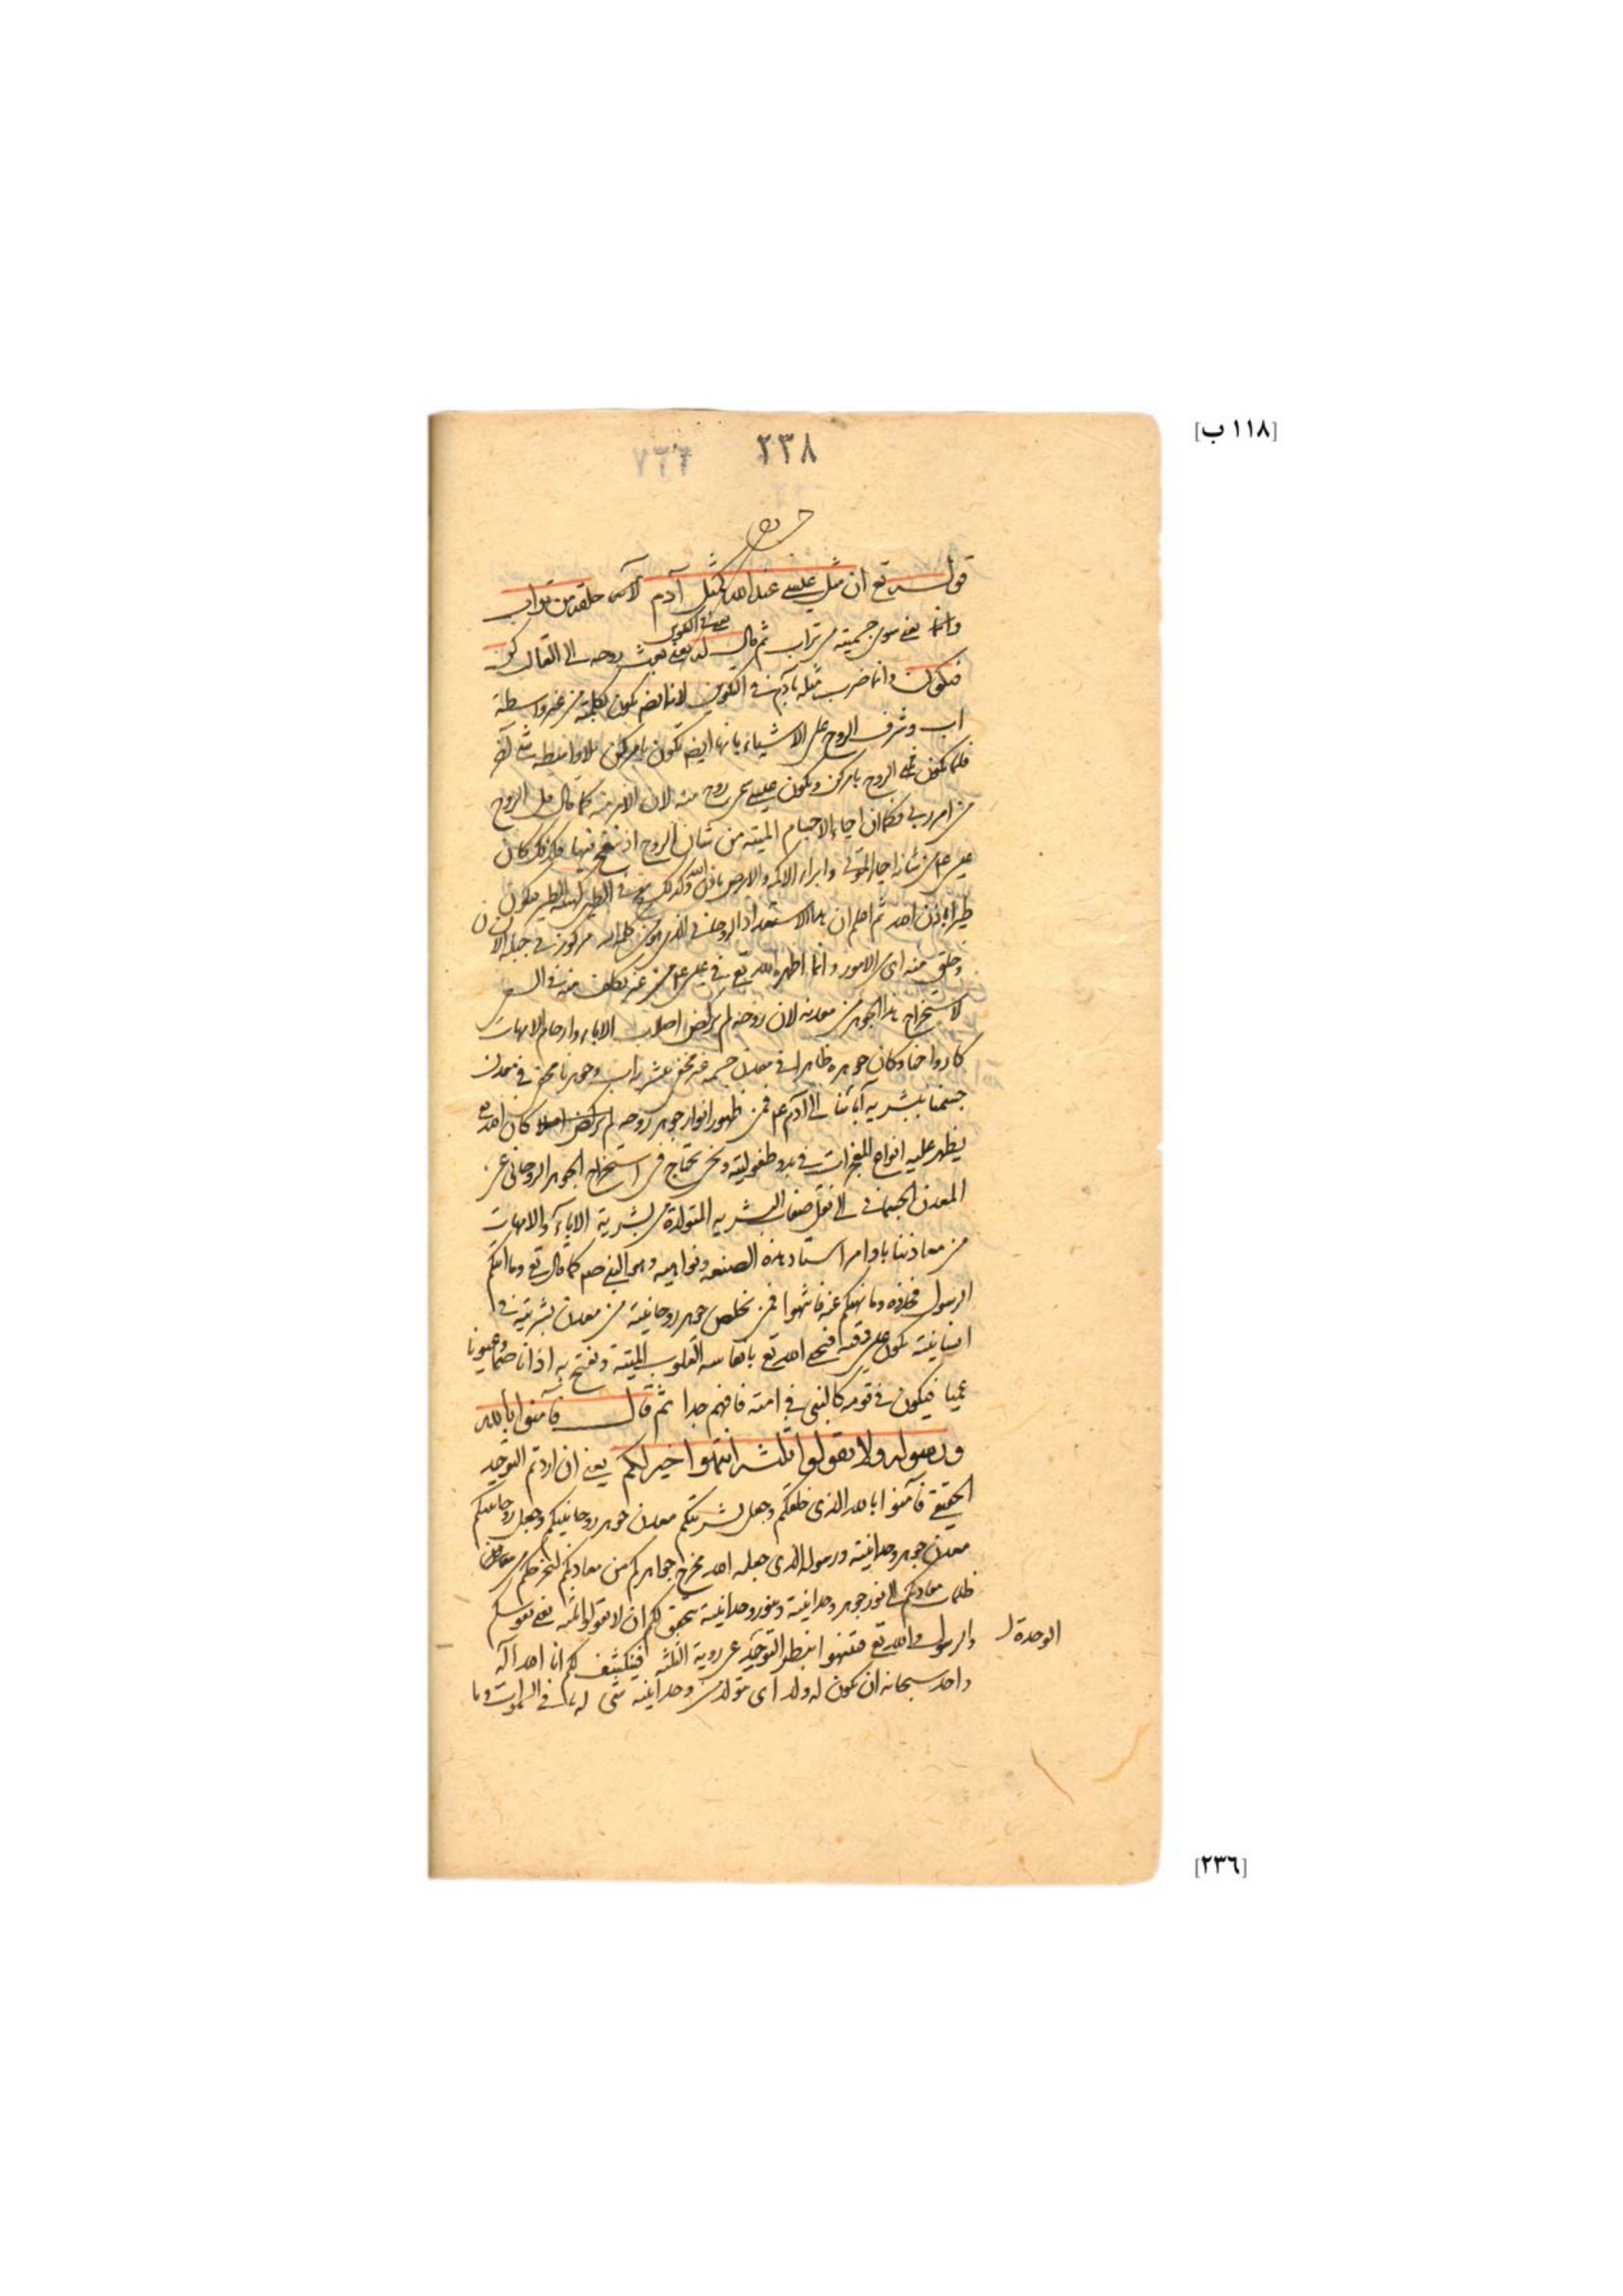 [١١٨ ب]
٢٣٨
قوله تع ان مثل عيسى عند الله كمثل آدم الآية خلقه من تراب
وانما يعنى سوى جسميته من تراب ثم قال له يعنى بعث روحه الى القالب كن
يعنى فى التكوين
فيكون وانما ضرب مثله بآدم فى التكوين لانه ايضا يكون بكلمته من غير واسطة
اب وشرف الروح على الاشياء بانها ايض تكون بامر كن بلا واسطة شئ آخر
فكما تكون الروح بامر كن وتكون عيسى روح منه لان الامر منه كما قال قل الروح
من امر ربى فكما ان احياء الاجسام الميته من شان الروح اذ ينفخ فيها فكذلك كان
عيسى عم من شانه احياء الموتى وابراء الاكمه والابرص باذن الله وكذلك ينفخ فى الطين كهيئة الطير فيكون
طيرا باذن الله ثم اعلم ان هذا الاستعداد الروحانى الذى هو من كلمة الله مركوز فى جبلة الانسان
وخلق منه اى من الامور وانما اظهره الله تع فى عيسى عم من غير تكلف منه فى السعى
لاستخراج هذا الجوهر من معدنه لان روحه لم يركض اصلاب الاباء وارحام الامهات
كارواحنا وكان جوهره ظاهرا فى معدن جسمه غير مخفى ببشرية اب وجوهرنا مخفى فى معدن
جسمنا ببشرية آبائنا الى آدم عم فمن ظهور انوار جوهر روحه كان الله تع
يظهر عليه انواع المعجزات فى بدو طفوليته ونحن نحتاج فى استخراج الجوهر الروحانى من
المعدن الجسمانى الى نقل صفات البشريه المتولدة من بشرية الاباء والامهات
من معادننا باوامر استاد هذه الصنعه ونواهيه وهو النبى صعم كما قال تع وما اتيكم
الرسول فخذوه وما نهيكم عنه فانتهوا فمن تخلص جوهر روحانيته من معدن بشريته فى
انسانيته يكون عيسى وقته فيحيى الله تع بانفاسه القلوب الميتة ويفتح به اذانا صما وعيونا
عميا فيكون فى قومه كالنبى فى امته فافهم جدا ثم قال فآمنوا بالله
ورسوله ولا تقولوا ثلثة انتهوا خيرا لكم يعنى ان اردتم التوحيد
الحقيقى فآمنوا بالله الذى خلقكم وجعل بشريتكم معدن جوهر روحانيتكم وجعل روحانيتكم
معدن جوهر وحدانيته ورسوله الذى جعله الله مخرج جواهركم من معادنكم ليخرجكم من
ظلمات معادنكم الى نور جوهر وحدانيته وبنور وحدانيته يتحقق لكم ان لا تقولوا ثلثه يعنى نفوسكم
والرسول والله تع فتنتهوا بنظر التوحيد عن روية الثلثه فينكشف لكم انما الله آله
الوحدة ل
واحد سبحانه ان يكون له ولد اى متولد من وحدانيته شئ له ما فى السموات وما
[٢٣٦]